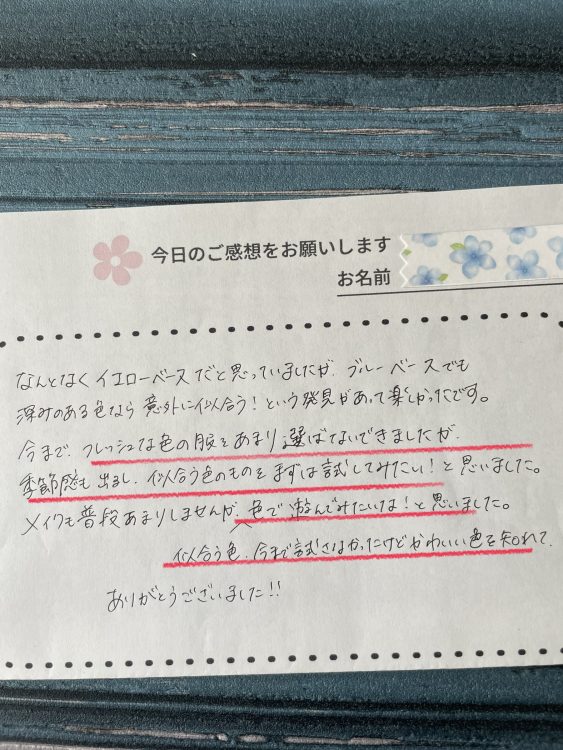 今日のご感想をお願いします
お名前
なんとなくイエローベースだと思っていましたが、ブルーベースでも
深みのある色なら意外に似合う！という発見があって楽しかったです。
今まで、フレッシュな色の服をあまり選ばないできましたが、
季節感も出るし、似合う色のものをまずは試してみたい！と思いました。
メイクも普段あまりしませんが、色で遊んでみたいな！と思いました。
似合う色、今まで試さなかったけどかわいい色を知れて、
ありがとうございました!!